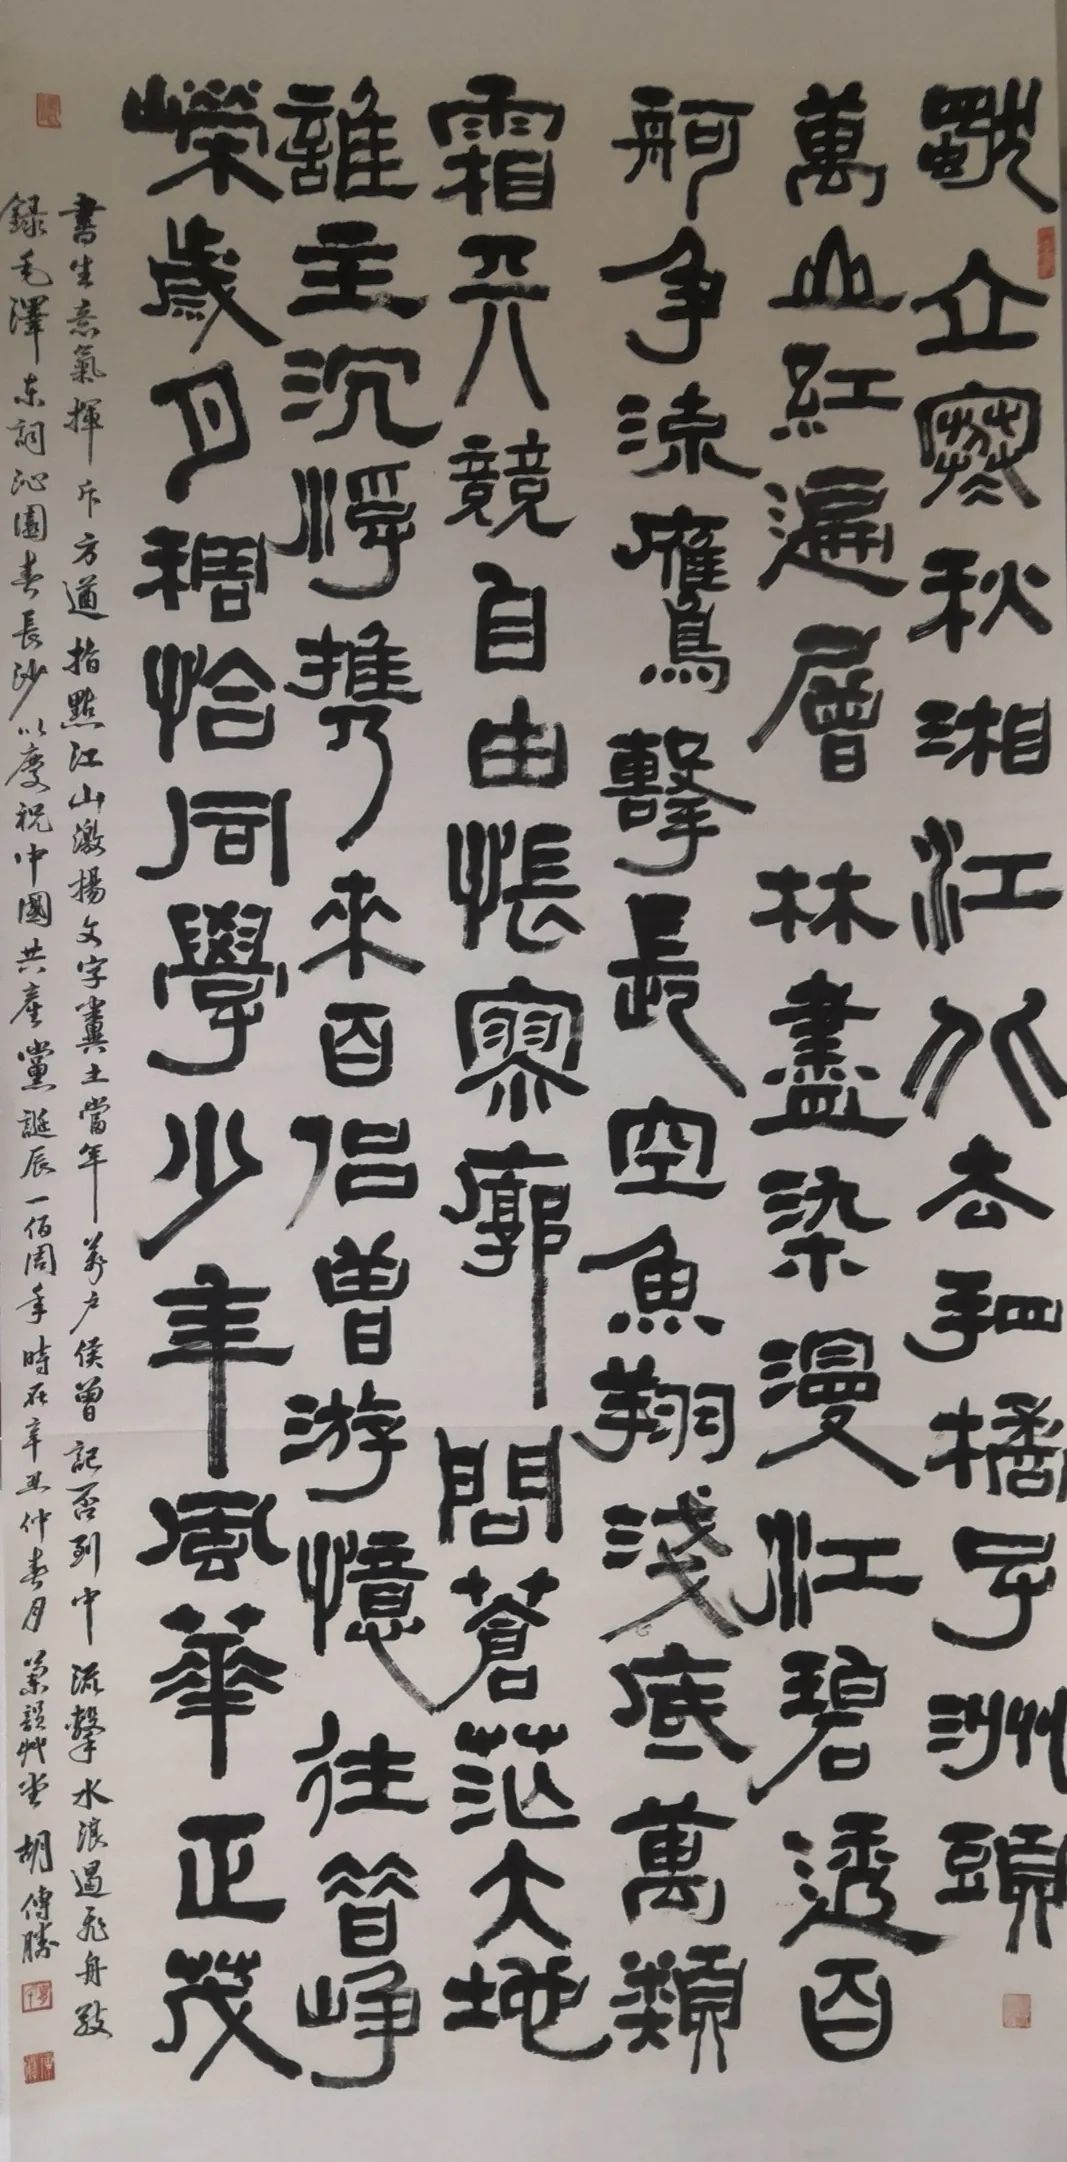 獨立寒秋湘江北去橘子洲頭
萬山紅遍層林盡染漫江碧透百
舸爭流鷹擊長空魚翔淺底萬類
霜天競自由悵寥廓問蒼茫大地
誰主沉浮攜來百侶曾游憶往昔崢
嶸歲月稠恰同學少年風華正茂
書生意氣揮斥方遒指點江山激揚文字糞土當年萬户侯曾記否到中流擊水浪遏飛舟敬
録毛澤東詞沁園春長沙以慶祝中國共産黨誕辰一佰周年時在辛丑仲春月蘭韻艸堂胡傳勝